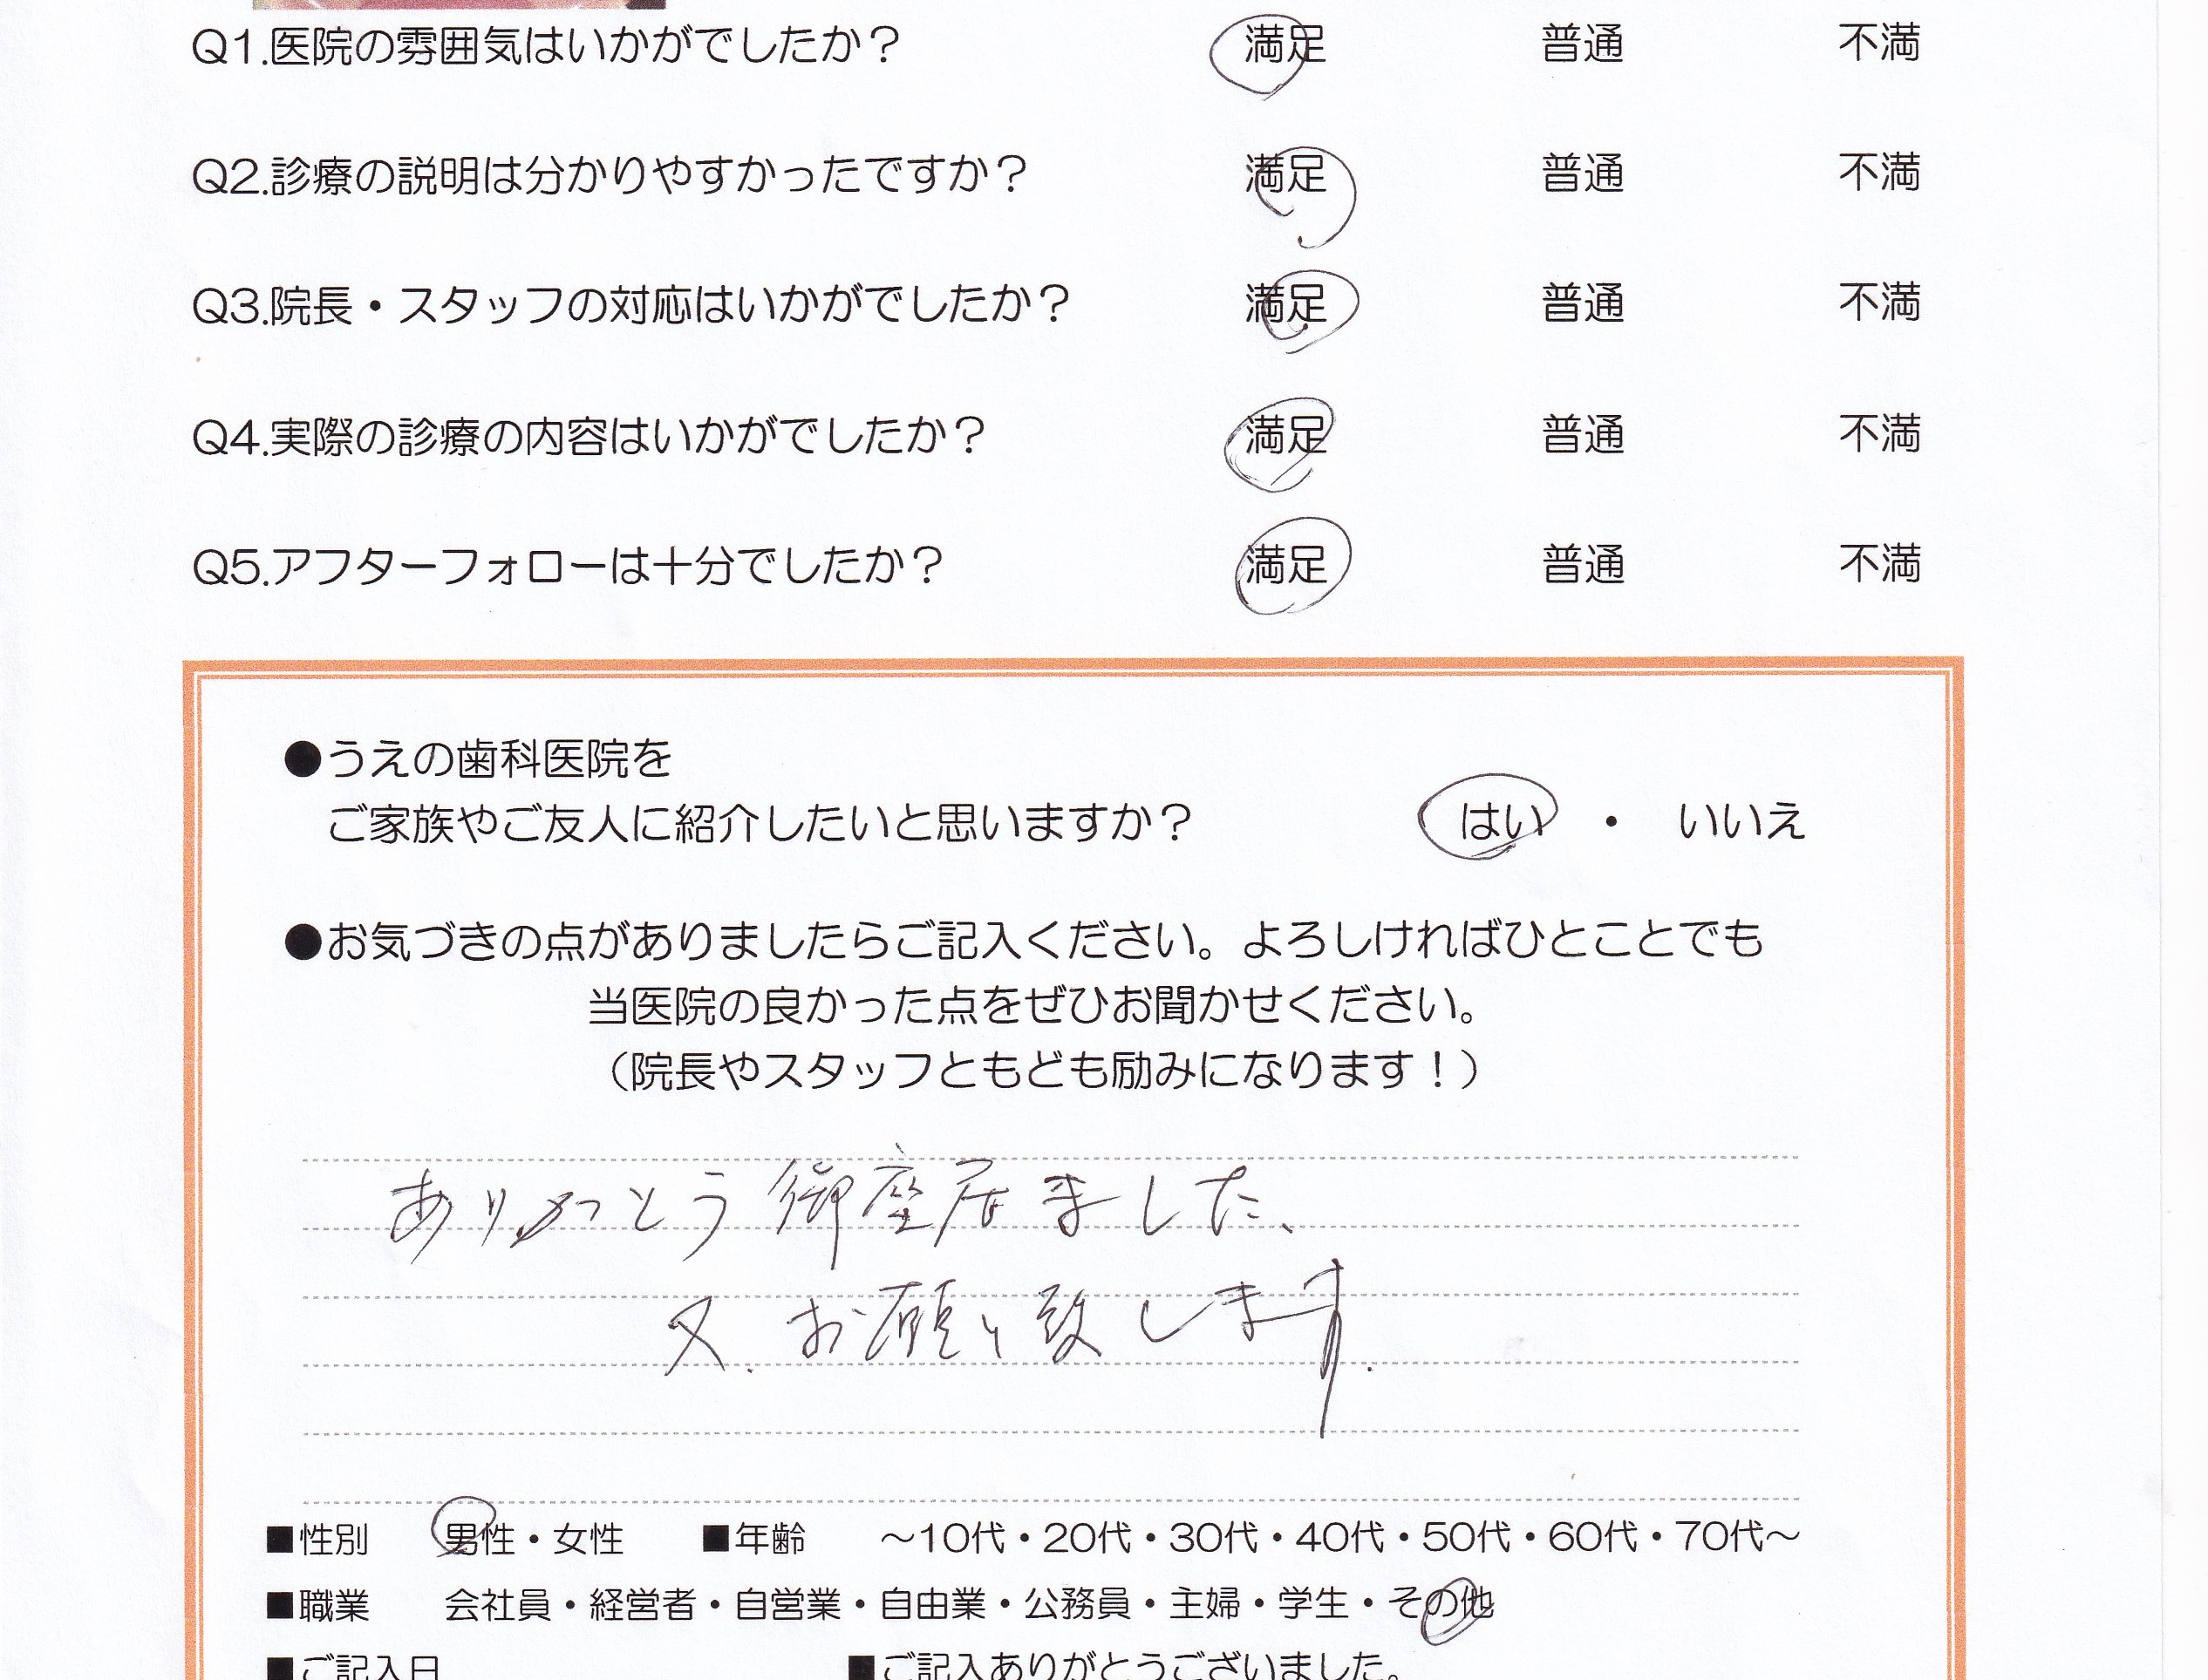 Q1.医院の雰囲気はいかがでしたか？ 満足 普通 不満
Q2.診療の説明は分かりやすかったですか？ 満足 普通 不満
Q3.院長・スタッフの対応はいかがでしたか？ 満足 普通 不満
Q4.実際の診療の内容はいかがでしたか？ 満足 普通 不満
Q5.アフターフォローは十分でしたか？ 満足 普通 不満
●うえの歯科医院を
ご家族やご友人に紹介したいと思いますか？ はい ・ いいえ
●お気づきの点がありましたらご記入ください。よろしければひとことでも
当医院の良かった点をぜひお聞かせください。
（院長やスタッフともども励みになります！）
ありがとう御座居ました、
又.お願い致します.
■性別 男性・女性 ■年齢 〜10代・20代・30代・40代・50代・60代・70代〜
■職業 会社員・経営者・自営業・自由業・公務員・主婦・学生・その他
■ご記入日 ■ご記入ありがとうございました。